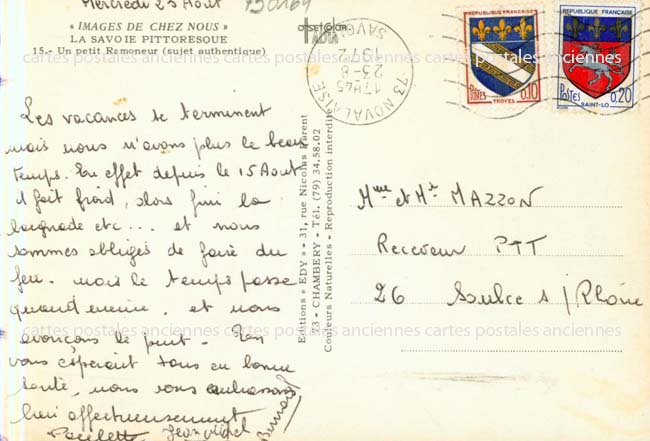 Mercredi 23 Août
130164
« IMAGES DE CHEZ NOUS »
LA SAVOIE PITTORESQUE
15.- Un petit Remoneur (sujet authentique)
OFFSETCOLOR
73 NOVALAISE
17H45
23-8
1972
SAVOIE
REPUBLIQUE FRANÇAISE
POSTES 0,10
TROYES
REPUBLIQUE FRANÇAISE
POSTES 0,20
SAINT-LO
Les vacances se terminent
mais nous n'avons plus le beau
temps. En effet depuis le 15 Aout
il fait froid, alors fini la
baignade etc... et nous
sommes obligés de faire du
feu. mais le temps passe
quand même. et nous
avançons le pont. En
vous espérant tous en bonne
santé, nous vous embrassons
bien affectueusement
Paulette Jean Michel
Bernard
Editions « EDY » - 31, rue Nicolas Parent
73 - CHAMBERY - Tél. (79) 34.58.02
Couleurs Naturelles - Reproduction interdite
Mme et Mr MAZZON
Receveur PTT
26 Saulce s/Rhône
cartes postales anciennes cartes postales anciennes cartes postales anciennes
cartes postales anciennes cartes postales anciennes cartes postales anciennes